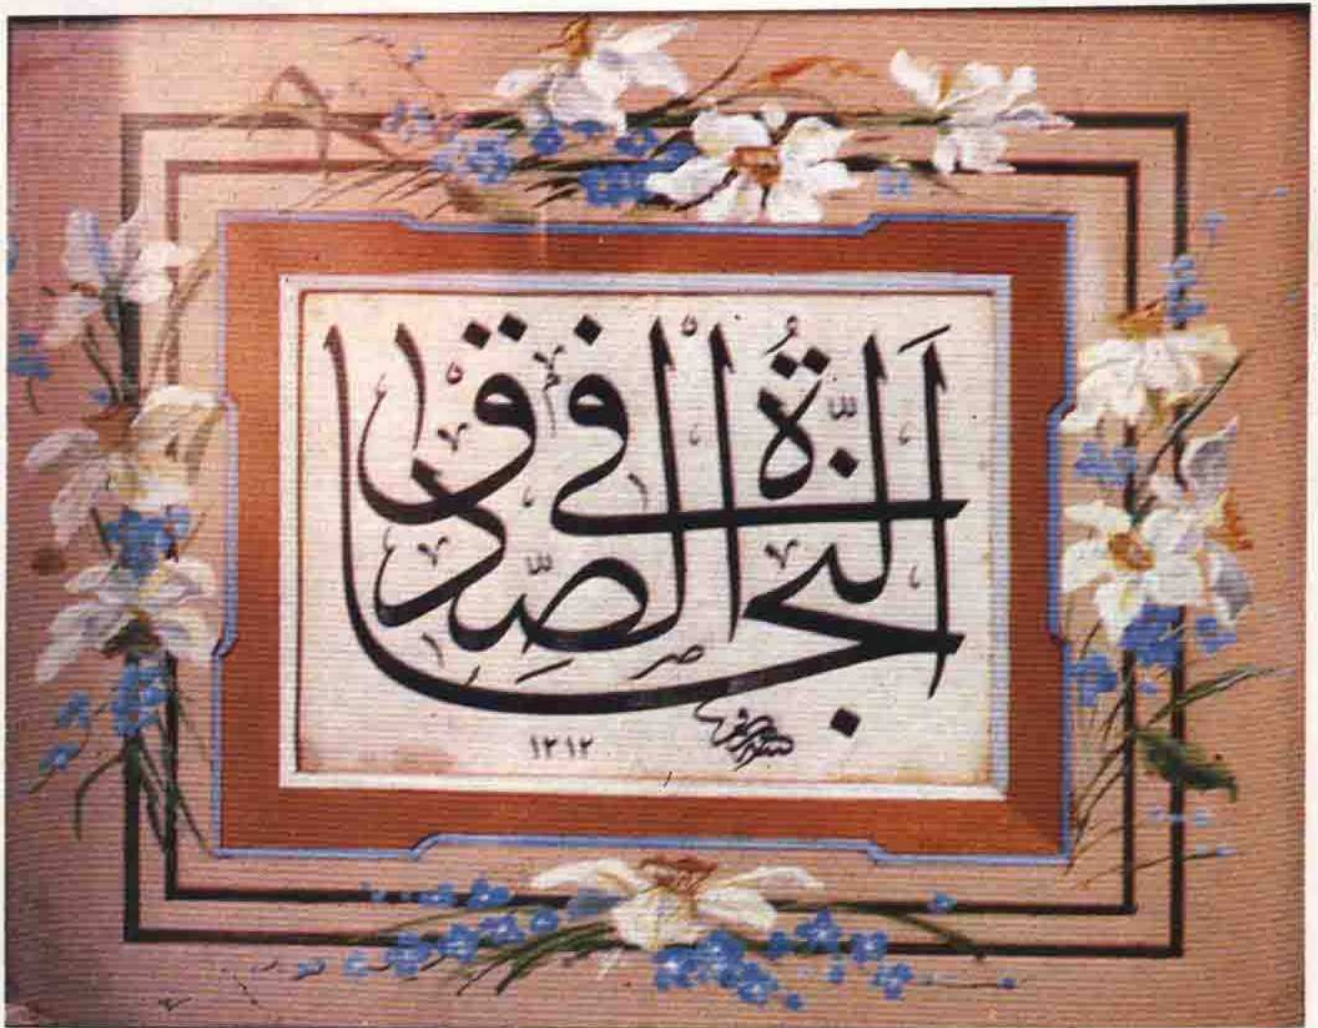 اَلنَّجَاةُ فِي الصِّدْقِ
١٢١٢